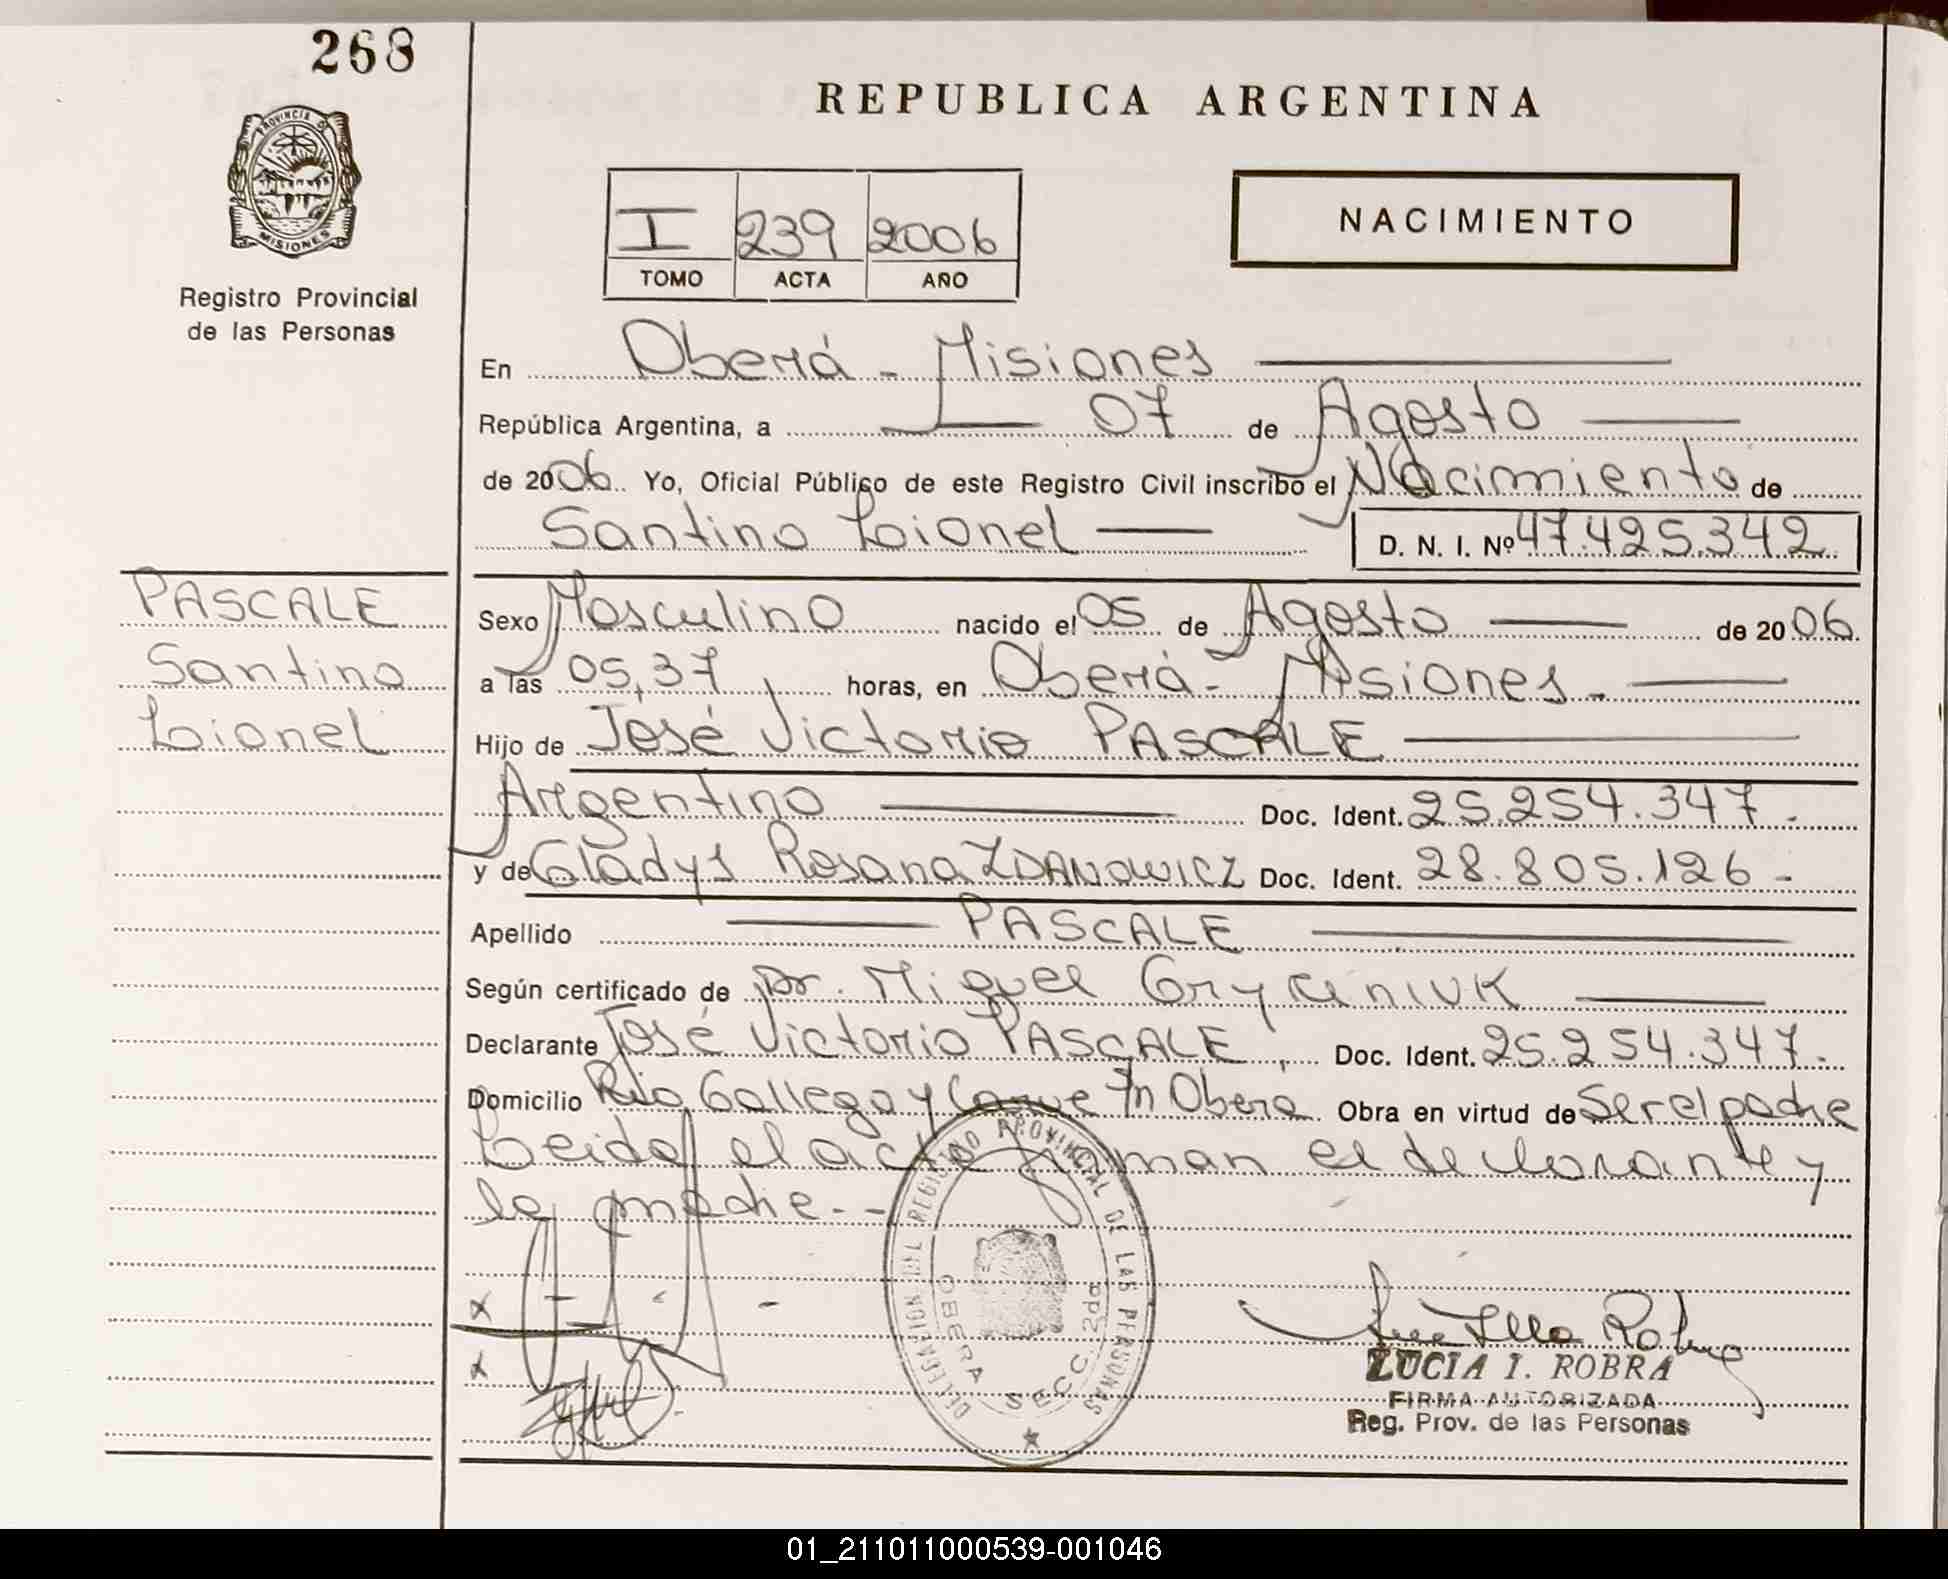 268
PROVINCIA D
MISIONES
Registro Provincial
de las Personas
REPUBLICA ARGENTINA
I 239 2006
TOMO ACTA AÑO
NACIMIENTO
En Oberá - Misiones
República Argentina, a 07 de Agosto
de 2006 Yo, Oficial Público de este Registro Civil inscribo el Nacimiento de
Santino Lionel D. N. I. Nº 47.425.342
PASCALE
Santino
Lionel
Sexo Masculino nacido el 05 de Agosto de 2006
a las 05,37 horas, en Oberá - Misiones.
Hijo de José Victorio PASCALE
Argentino Doc. Ident. 25.254.347.
y de Gladys Rosana ZDANOWICZ Doc. Ident. 28.805.126 -
Apellido PASCALE
Según certificado de Dr. Miguel
Declarante José Victorio PASCALE, Doc. Ident. 25.254.347.
Domicilio Río Gallego y S/n Oberá Obra en virtud de Ser el padre
Leida el acta firman el declarante y
la madre. - -
DELEGACION DEL REGISTRO PROVINCIAL DE LAS PERSONAS
OBERA SECC. 2da
x
x
LUCIA I. ROBRA
FIRMA AUTORIZADA
Reg. Prov. de las Personas
01_211011000539-001046